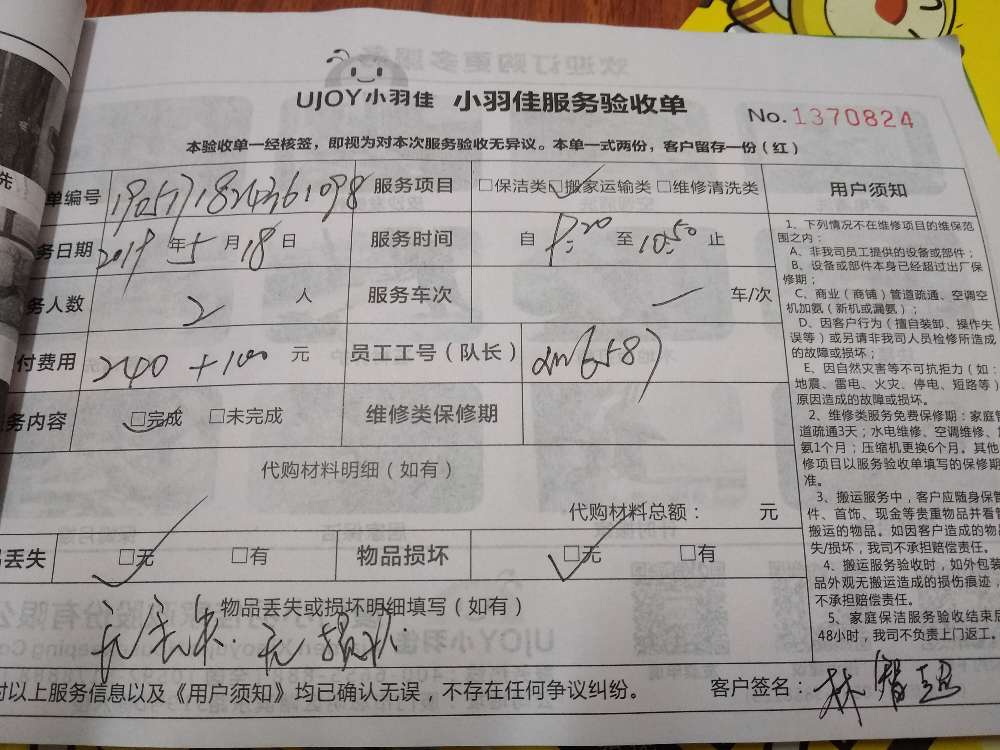 先
UJOY小羽佳 小羽佳服务验收单 No. 1370824
本验收单一经核签，即视为对本次服务验收无异议。本单一式两份，客户留存一份（红）
单编号 服务项目 □保洁类 □搬家运输类 □维修清洗类
务日期 2019 年 5 月 18 日 服务时间 自 至 10:50 止
务人数 2 人 服务车次 一 车/次
付费用 2400+100 元 员工工号（队长）
务内容 □完成 □未完成 维修类保修期
代购材料明细（如有）
代购材料总额： 元
品丢失 □无 □有 物品损坏 □无 □有
物品丢失或损坏明细填写（如有）
无丢失.无损坏
对以上服务信息以及《用户须知》均已确认无误，不存在任何争议纠纷。 客户签名：林
用户须知
1、下列情况不在维修项目的维保范
围之内：
A、非我司员工提供的设备或部件；
B、设备或部件本身已经超过出厂保
修期；
C、商业（商铺）管道疏通、空调空
机加氨（新机或漏氨）；
D、因客户行为（擅自装卸、操作失
误等）或另请非我司人员检修所造成
的故障或损坏；
E、因自然灾害等不可抗拒力（如：
地震、雷电、火灾、停电、短路等）
原因造成的故障或损坏。
2、维修类服务免费保修期：家庭管
道疏通3天；水电维修、空调维修、加
氨1个月；压缩机更换6个月。其他
修项目以服务验收单填写的保修期
准。
3、搬运服务中，客户应随身保管
件、首饰、现金等贵重物品并看管
搬运的物品。如因客户造成的物品
失/损坏，我司不承担赔偿责任。
4、搬运服务验收时，如外包装
品外观无搬运造成的损伤痕迹，
不承担赔偿责任。
5、家庭保洁服务验收结束后
48小时，我司不负责上门返工。